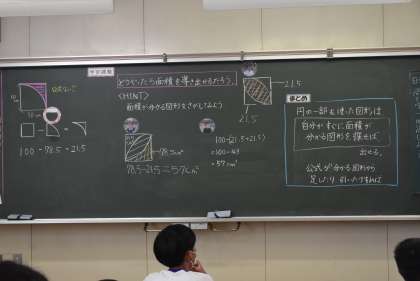 公式なし
10cm
100 - 78.5 = 21.5
学習課題
どうやったら面積を導き出せるだろう。
<HINT>
面積が分かる図形をさがしてみよう
78.5cm²
78.5-21.5=57cm²
21.5
21.5
100-(21.5+21.5)
=100-43
=57cm²
まとめ
円の一部を使った図形は
自分がすぐに面積が
分かる図形を探せば
出せる。
公式が分かる図形から
足したり、引いたりすれば